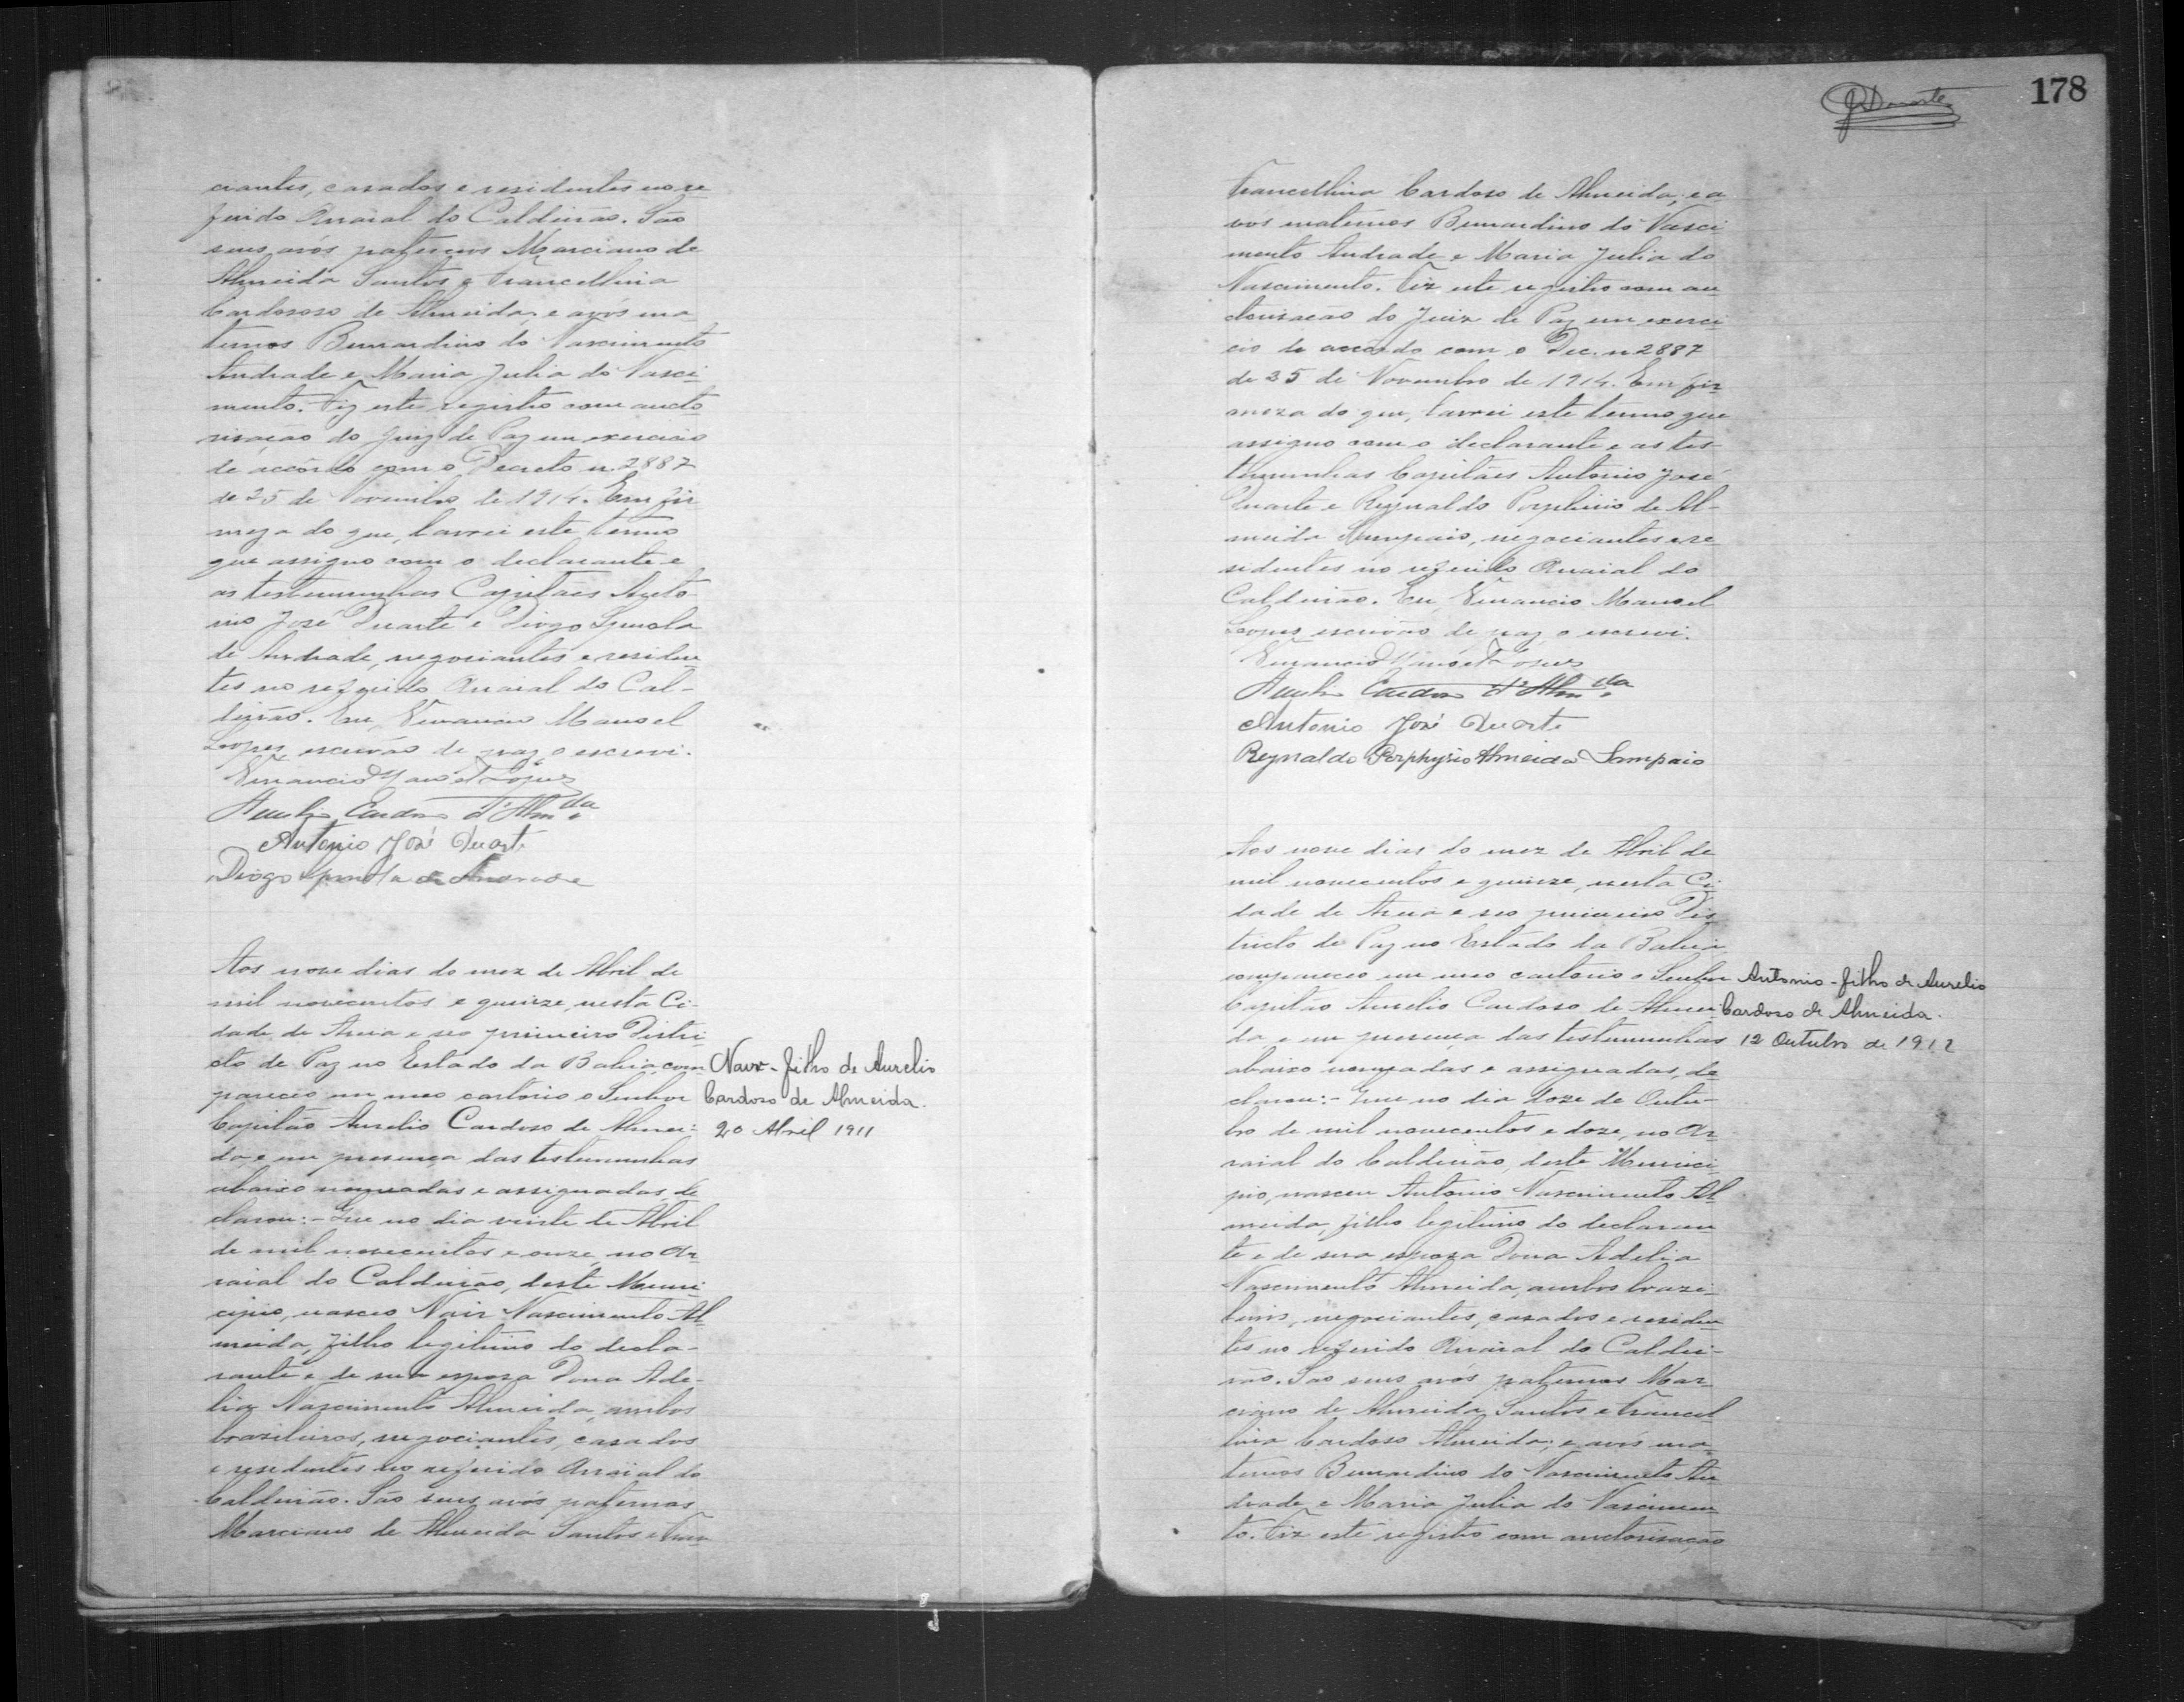 ciantes, casados e residentes no re
ferido Arraial do Caldeirão. São
seus avós paternos Marciano de
Almeida Santos e Francellina
Cardososo de Almeida, e avós ma
ternos Bernardino do Nascimento
Andrade e Maria Julia do Nasci-
mento. Fiz este registro com aucto
risação do Juiz de Paz em exercicio
de accôrdo com o Decreto n. 2887
de 25 de Novembro de 1914. Em fir
meza do que, lavrei este termo
que assigno com o declarante e
as testemunhas Capitães Anto
nio José Duarte e Diogo Spinola
de Andrade, negociantes e residen
tes no referido Arraial do Cal-
deirão. Eu, Venancio Manoel
Lopes, escrivão de paz, o escrevi.
Venancio Manoel Lopes
Aurelio Cardoso d'Almda
Antonio José Duarte
Diogo Spinola de Andrade
Aos nove dias do mez de Abril de
mil novecentos e quinze, nesta Ci-
dade de Areia e seo primeiro Distri-
cto de Paz no Estado da Bahia, com
pareceo em meo cartorio o Senhor
Capitão Aurelio Cardoso de Almei-
da, e em presença das testemunhas
abaixo nomeadas e assignadas, de
clarou:- Que no dia vinte de Abril
de mil novecentos e onze, no Ar
raial do Caldeirão, deste Muni
cipio, nasceo Nair Nascimento Al
meida, filho legitimo do decla-
rante e de sua esposa Dona Ade-
lia Nascimento Almeida, ambos
brazileiros, negociantes, casados
e residentes no referido Arraial do
Caldeirão. São seus avós paternos
Marciano de Almeida Santos e Fran
Nair - filho de Aurelio
Cardoso de Almeida.
20 Abril 1911
178
Duarte
Francellina Cardoso de Almeida; e a
vos maternos Bernardino do Nasci
mento Andrade e Maria Julia do
Nascimento. Fiz este registro com au
ctorisação do Juiz de Paz em exerci
cio de accôrdo com o Dec. n 2887
de 25 de Novembro de 1914. Em fir
meza do que, lavrei este termo que
assigno com o declarante e as tes-
temunhas Capitães Antonio José
Duarte e Reynaldo Porphirio de Al-
meida Sampaio, negociantes e re
sidentes no referido Arraial do
Caldeirão. Eu, Venancio Manoel
Lopes escrivão de paz o escrevi.
Venancio Manoel Lopes
Aurelio Cardoso d'Almda
Antonio José Duarte
Reynaldo Porphyrio Almeida Sampaio
Aos nove dias do mez de Abril de
mil novecentos e quinze, nesta Ci-
dade de Areia e seo primeiro Dis
tricto de Paz no Estado da Bahia
compareceo em meo cartorio o Senhor
Capitão Aurelio Cardoso de Almei
da e em presença das testemunhas
abaixo nomeadas e assignadas, de
clarou:- Que no dia doze de Outu-
bro de mil novecentos e doze, no Ar
raial do Caldeirão, deste Munici
pio, nasceu Antonio Nascimento Al
meida, filho legitimo do declaran
te e de sua esposa Dona Adelia
Nascimento Almeida, ambos brazi-
leiros, negociantes, casados e residen
tes no referido Arraial do Caldei-
rão. São seus avós paternos Mar
ciano de Almeida Santos e Francel
lina Cardoso Almeida; e avós ma
ternos Bernardino do Nascimento An
drade e Maria Julia do Nascimen
to. Fiz este registro com auctorisação
Antonio - filho de Aurelio
Cardoso de Almeida.
12 Outubro de 1912